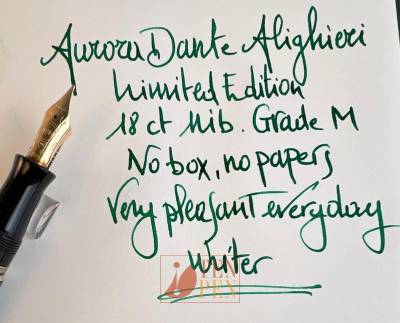 Aurora Dante Alighieri
Limited Edition
18 ct Nib. Grade M
No box, no papers
Very pleasant everyday
writer
PEN
PEN